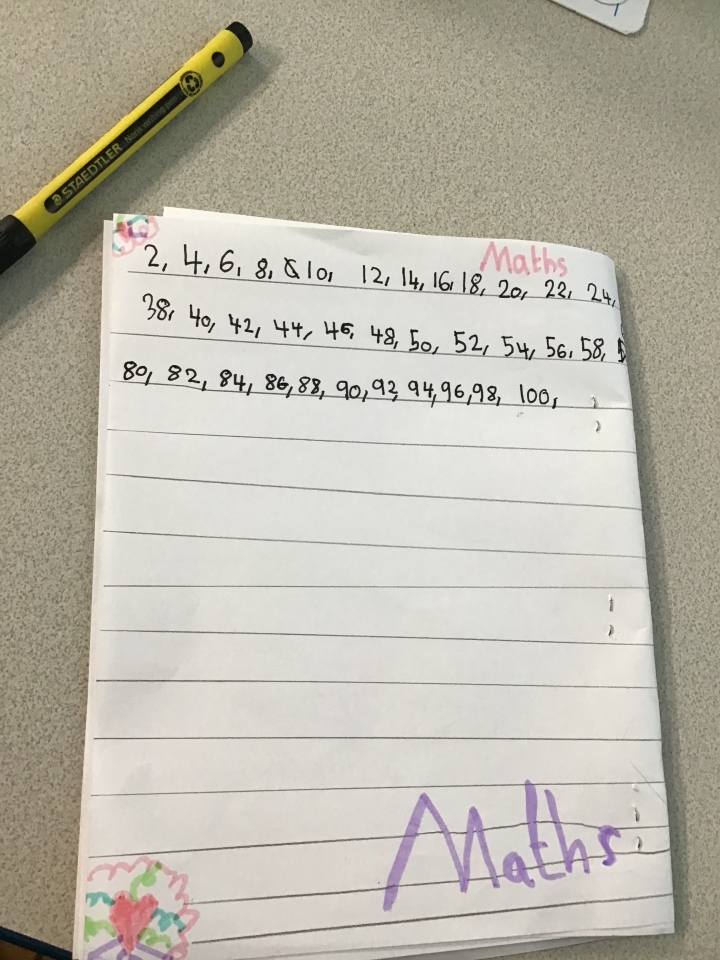 STAEDTLER Noris writing pen
Maths
2, 4, 6, 8, 10, 12, 14, 16, 18, 20, 22, 24,
38, 40, 42, 44, 46, 48, 50, 52, 54, 56, 58,
80, 82, 84, 86, 88, 90, 92, 94, 96, 98, 100,
Maths